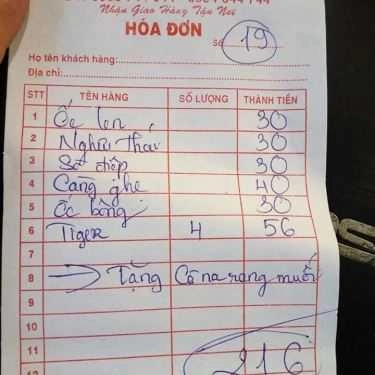 Nhận Giao Hàng Tận Nơi
HÓA ĐƠN
Số 19
Họ tên khách hàng:
Địa chỉ:
STT TÊN HÀNG SỐ LƯỢNG THÀNH TIỀN
1 Ốc len 30
2 Nghêu Thái 30
3 Sò điệp 30
4 Càng ghẹ 40
5 Ốc bông 30
6 Tiger 4 56
7
8 → Tặng Cồ na rang muối
9
10
11 216